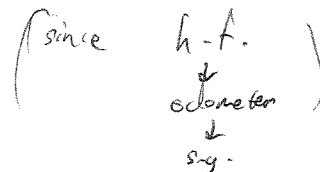 (since h-f.)
↓
odometer
↓
s-g.